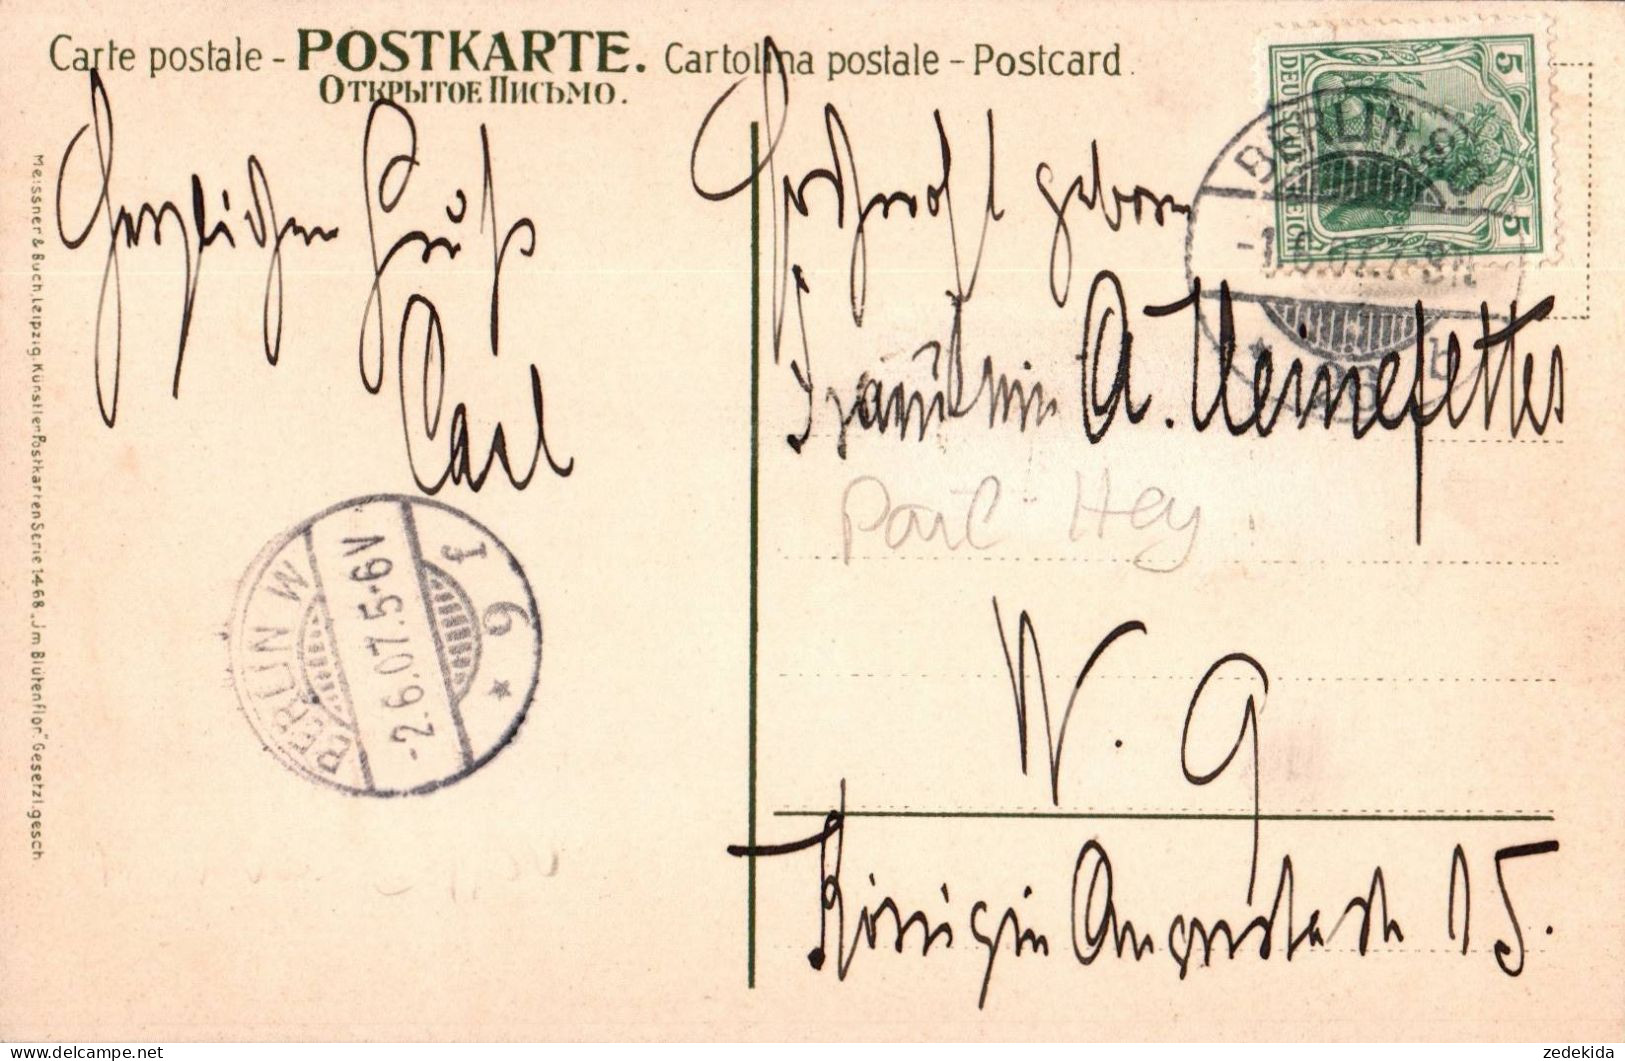 Carte postale - POSTKARTE. Cartolina postale - Postcard.
Открытое Письмо.
Herzlichen Gruß
Carl
Meissner & Buch, Leipzig. Künstler-Postkarten Serie 1468 „Im Blütenflor." Gesetzl. gesch.
BERLIN W
-2.6.07.5-6V
f 9 *
5 DEUTSCHES REICH 5
BERLIN
b
geboren
Fräulein A.
Paul Hey.
W. 9
Königin Augustastr 15.
zedekida